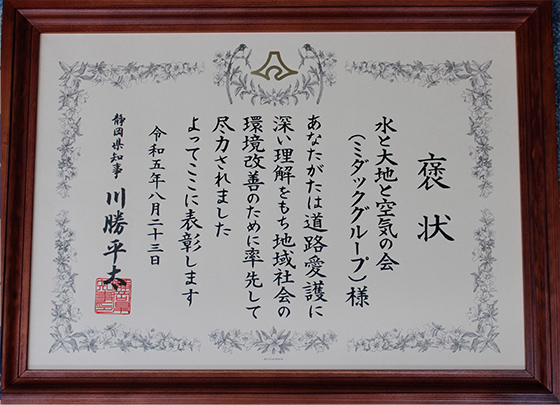 褒状
水と大地と空気の会
(ミダックグループ)様
あなたがたは道路愛護に
深い理解をもち地域社会の
環境改善のために率先して
尽力されました
よってここに表彰します
令和五年八月二十三日
静岡県知事 川勝平太